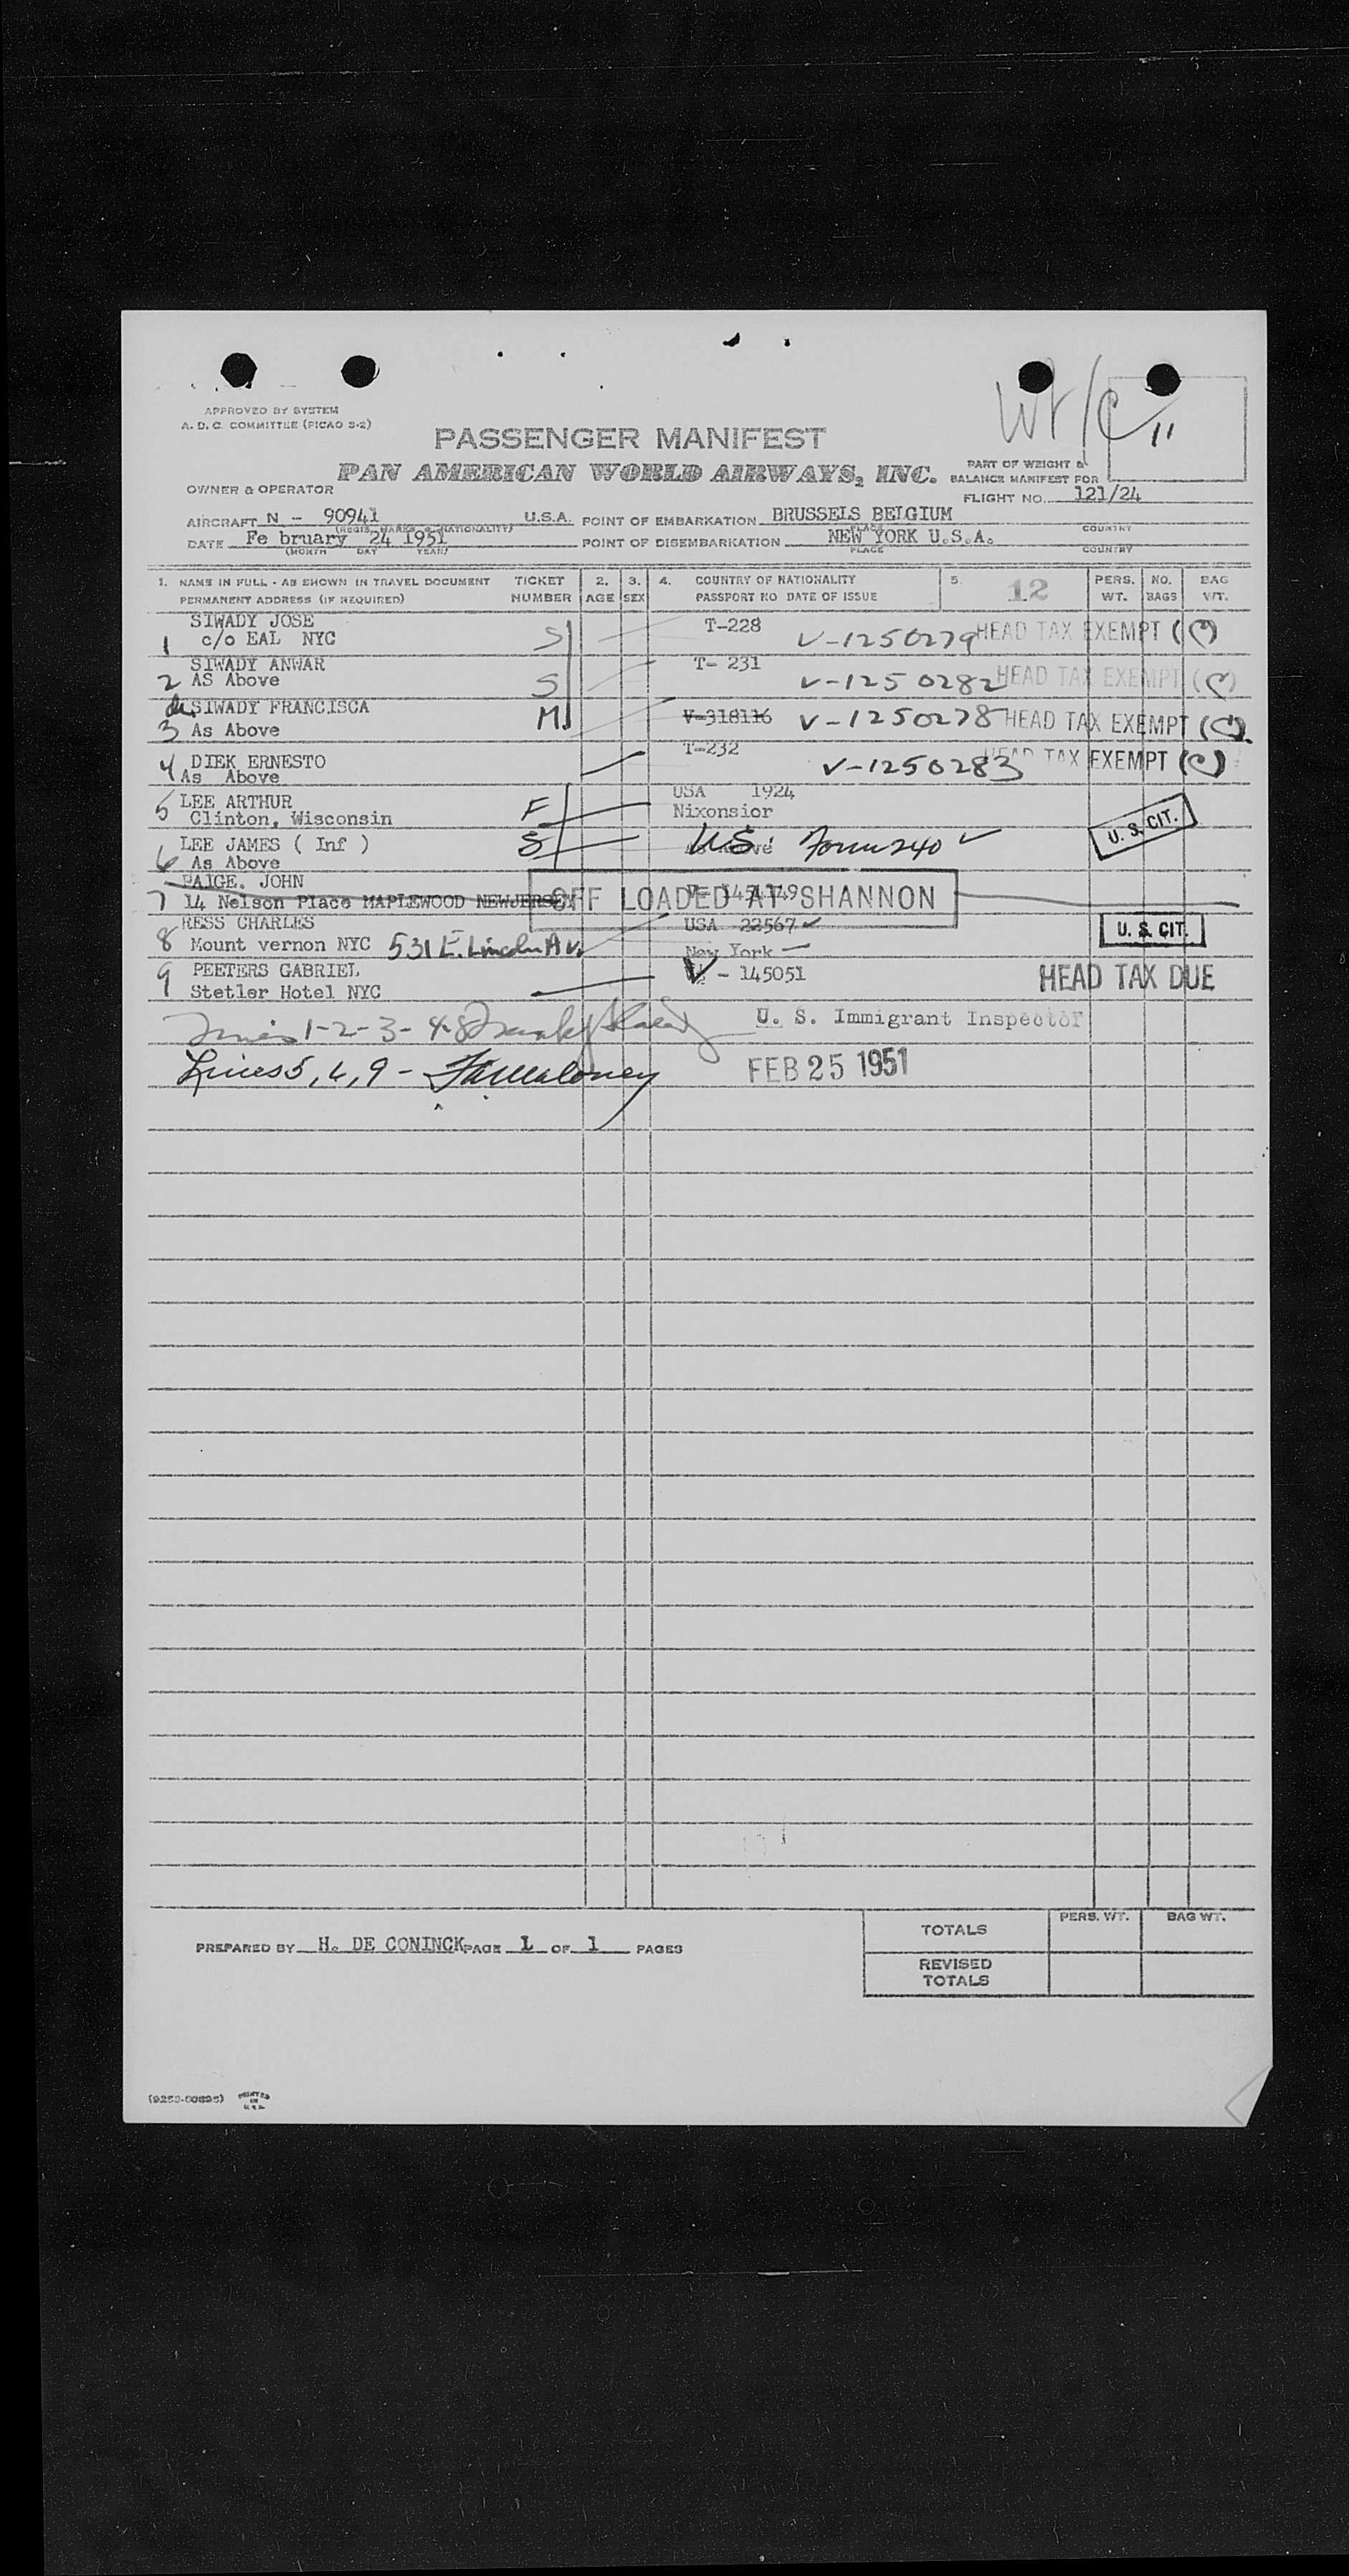 APPROVED BY SYSTEM
A. D. C. COMMITTEE (PICAO 3-2)
PASSENGER MANIFEST
11
OWNER & OPERATOR PAN AMERICAN WORLD AIRWAYS, INC.
PART OF WEIGHT &
BALANCE MANIFEST FOR
FLIGHT NO. 121/24
AIRCRAFT N - 90941 U.S.A. POINT OF EMBARKATION BRUSSELS BELGIUM
(REGIS. MARKS & NATIONALITY) PLACE COUNTRY
DATE Fe bruary 24 1951 POINT OF DISEMBARKATION NEW YORK U.S.A.
(MONTH DAY YEAR) PLACE COUNTRY
1. NAME IN FULL - AS SHOWN IN TRAVEL DOCUMENT TICKET 2. 3. 4. COUNTRY OF NATIONALITY 5. 12 PERS. NO. BAG
PERMANENT ADDRESS (IF REQUIRED) NUMBER AGE SEX PASSPORT NO DATE OF ISSUE WT. BAGS WT.
SIWADY JOSE T-228
1 c/o EAL NYC S V-1250279 HEAD TAX EXEMPT
SIWADY ANWAR T- 231
2 AS Above S V-1250282 HEAD TAX EXEMPT
de SIWADY FRANCISCA M V-318116 V-1250278 HEAD TAX EXEMPT
3 As Above
4 DIEK ERNESTO T-232
As Above V-1250283 HEAD TAX EXEMPT
5 LEE ARTHUR F USA 1924
Clinton, Wisconsin Nixonsior
LEE JAMES ( Inf ) S U.S. Form 240 U. S. CIT.
6 As Above
PAIGE. JOHN
7 14 Nelson Place MAPLEWOOD NEWJERSEY OFF LOADED AT SHANNON
RESS CHARLES USA 22567 U. S. CIT.
8 Mount vernon NYC 531 E. Lincoln Av. New York
9 PEETERS GABRIEL V - 145051 HEAD TAX DUE
Stetler Hotel NYC
Lines 1-2-3-4-8 U. S. Immigrant Inspector
Lines 5, 6, 9 - FEB 25 1951
PREPARED BY H. DE CONINCK PAGE 1 OF 1 PAGES
TOTALS PERS. WT. BAG WT.
REVISED
TOTALS
PRINTED
IN
U.S.A.